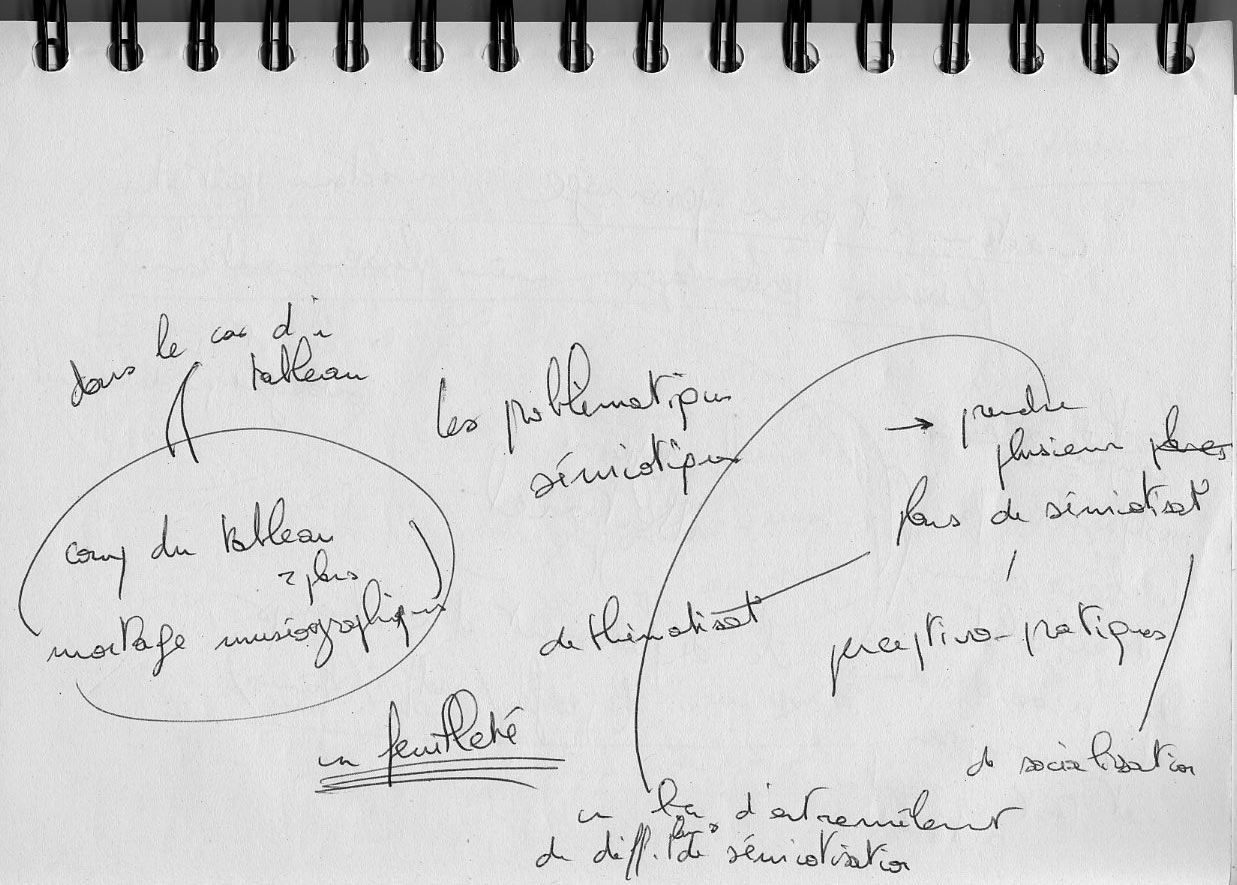 dans le cas d'1
tableau
corps du tableau
2 plans
montage muséographique
un feuilleté
les problématiques
sémiotiques
→ prendre
plusieurs
plans de sémiotisat°
de thématisat°
perceptivo-pratiques
de socialisation
un lieu d'entremêlement
de diff. plans de sémiotisation